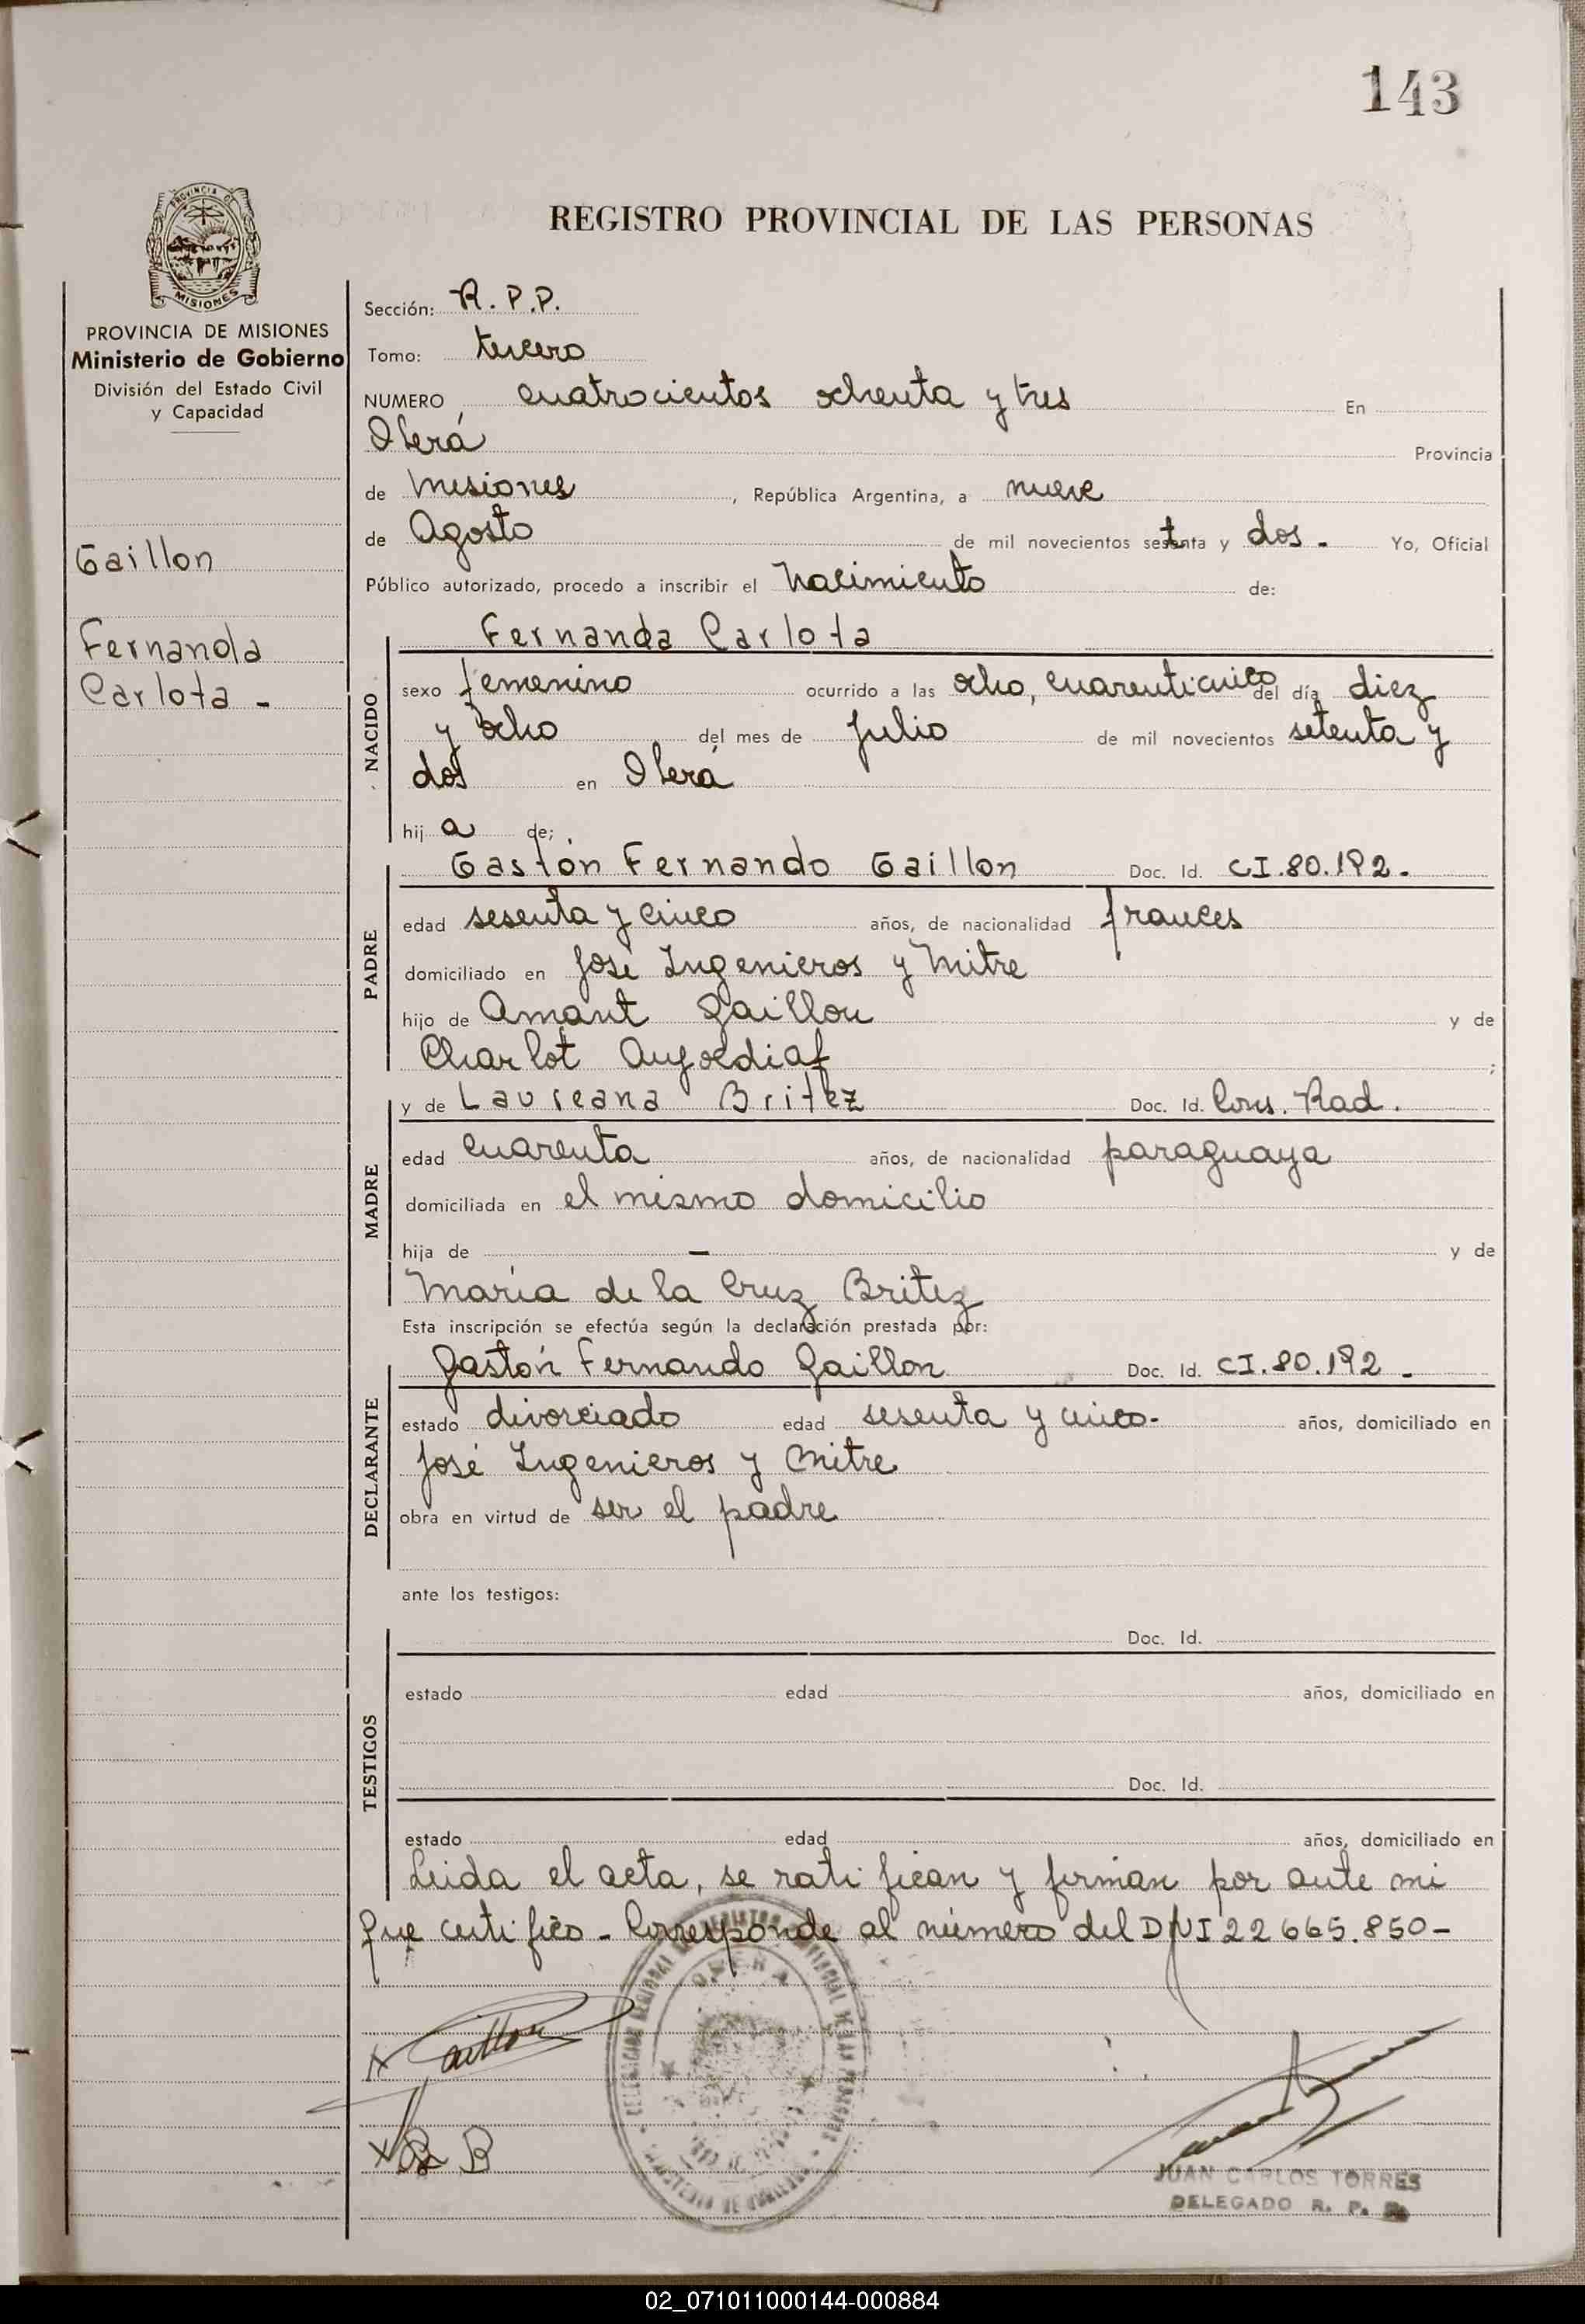 143
PROVINCIA DE
MISIONES
REGISTRO PROVINCIAL DE LAS PERSONAS
PROVINCIA DE MISIONES
Ministerio de Gobierno
División del Estado Civil
y Capacidad
Gaillon
Fernanda
Carlota -
Sección: R. P.P.
Tomo: tercero
NUMERO cuatrocientos ochenta y tres En
Oberá Provincia
de Misiones, República Argentina, a nueve
de Agosto de mil novecientos setenta y dos. Yo, Oficial
Público autorizado, procedo a inscribir el Nacimiento de:
NACIDO
Fernanda Carlota
sexo femenino ocurrido a las ocho, cuarenticinco del día diez
y ocho del mes de Julio de mil novecientos setenta y
dos en Oberá
hija de;
PADRE
Gastón Fernando Gaillon Doc. Id. CI.80.192.
edad sesenta y cinco años, de nacionalidad frances
domiciliado en José Ingenieros y Mitre
hijo de Amant Gaillon y de
Charlot ;
MADRE
y de Laureana Britez Doc. Id. Cons. Rad.
edad cuarenta años, de nacionalidad paraguaya
domiciliada en el mismo domicilio
hija de — y de
María de la Cruz Britez
Esta inscripción se efectúa según la declaración prestada por:
DECLARANTE
Gastón Fernando Gaillon Doc. Id. CI.80.192.
estado divorciado edad sesenta y cinco- años, domiciliado en
José Ingenieros y Mitre
obra en virtud de ser el padre
ante los testigos:
TESTIGOS
Doc. Id.
estado edad años, domiciliado en
Doc. Id.
estado edad años, domiciliado en
Leida el acta, se ratifican y firman por ante mi
que certifico - Corresponde al número del DNI 22 665.850-
x Gaillon
x B
JUAN CARLOS TORRES
DELEGADO R. P. P.
02_071011000144-000884